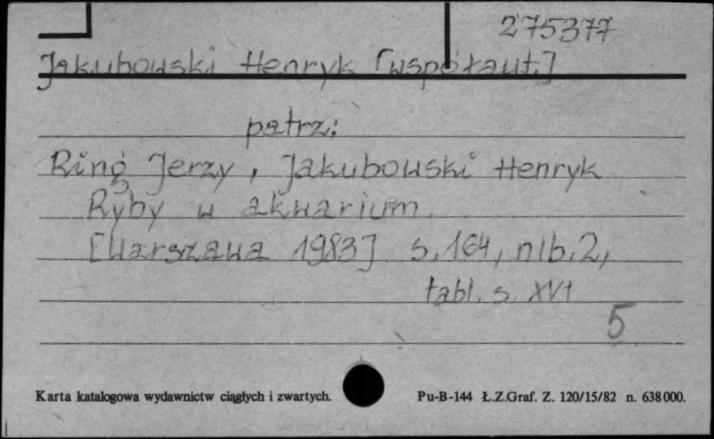 275377
Jakubowski Henryk [współaut.]
patrz:
Ring Jerzy, Jakubowski Henryk
Ryby w akwarium.
[Warszawa 1983] s. 164, nlb. 2,
tabl. s. XVI
5
Karta katalogowa wydawnictw ciągłych i zwartych. Pu-B-144 Ł.Z.Graf. Z. 120/15/82 n. 638 000.